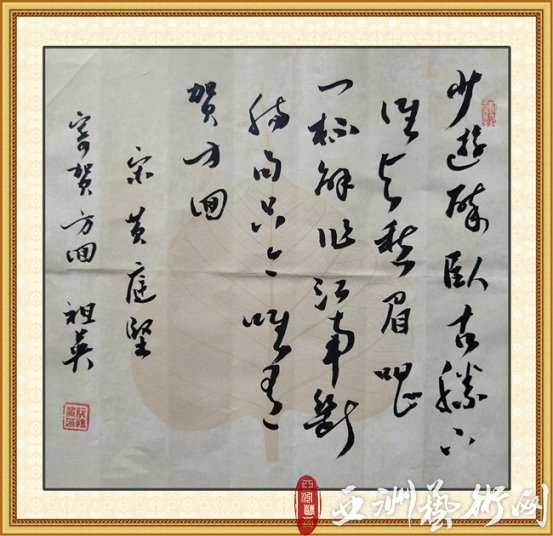 少遊醉臥古藤下
谁与愁眉唱
一杯解作江南断
肠句只今唯有
贺方回
宋黄庭坚
寄贺方回 祖英
亚洲藝術网